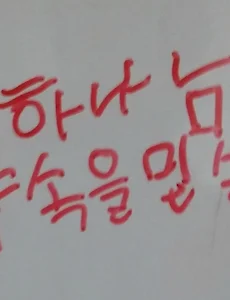 하나님
속을 믿